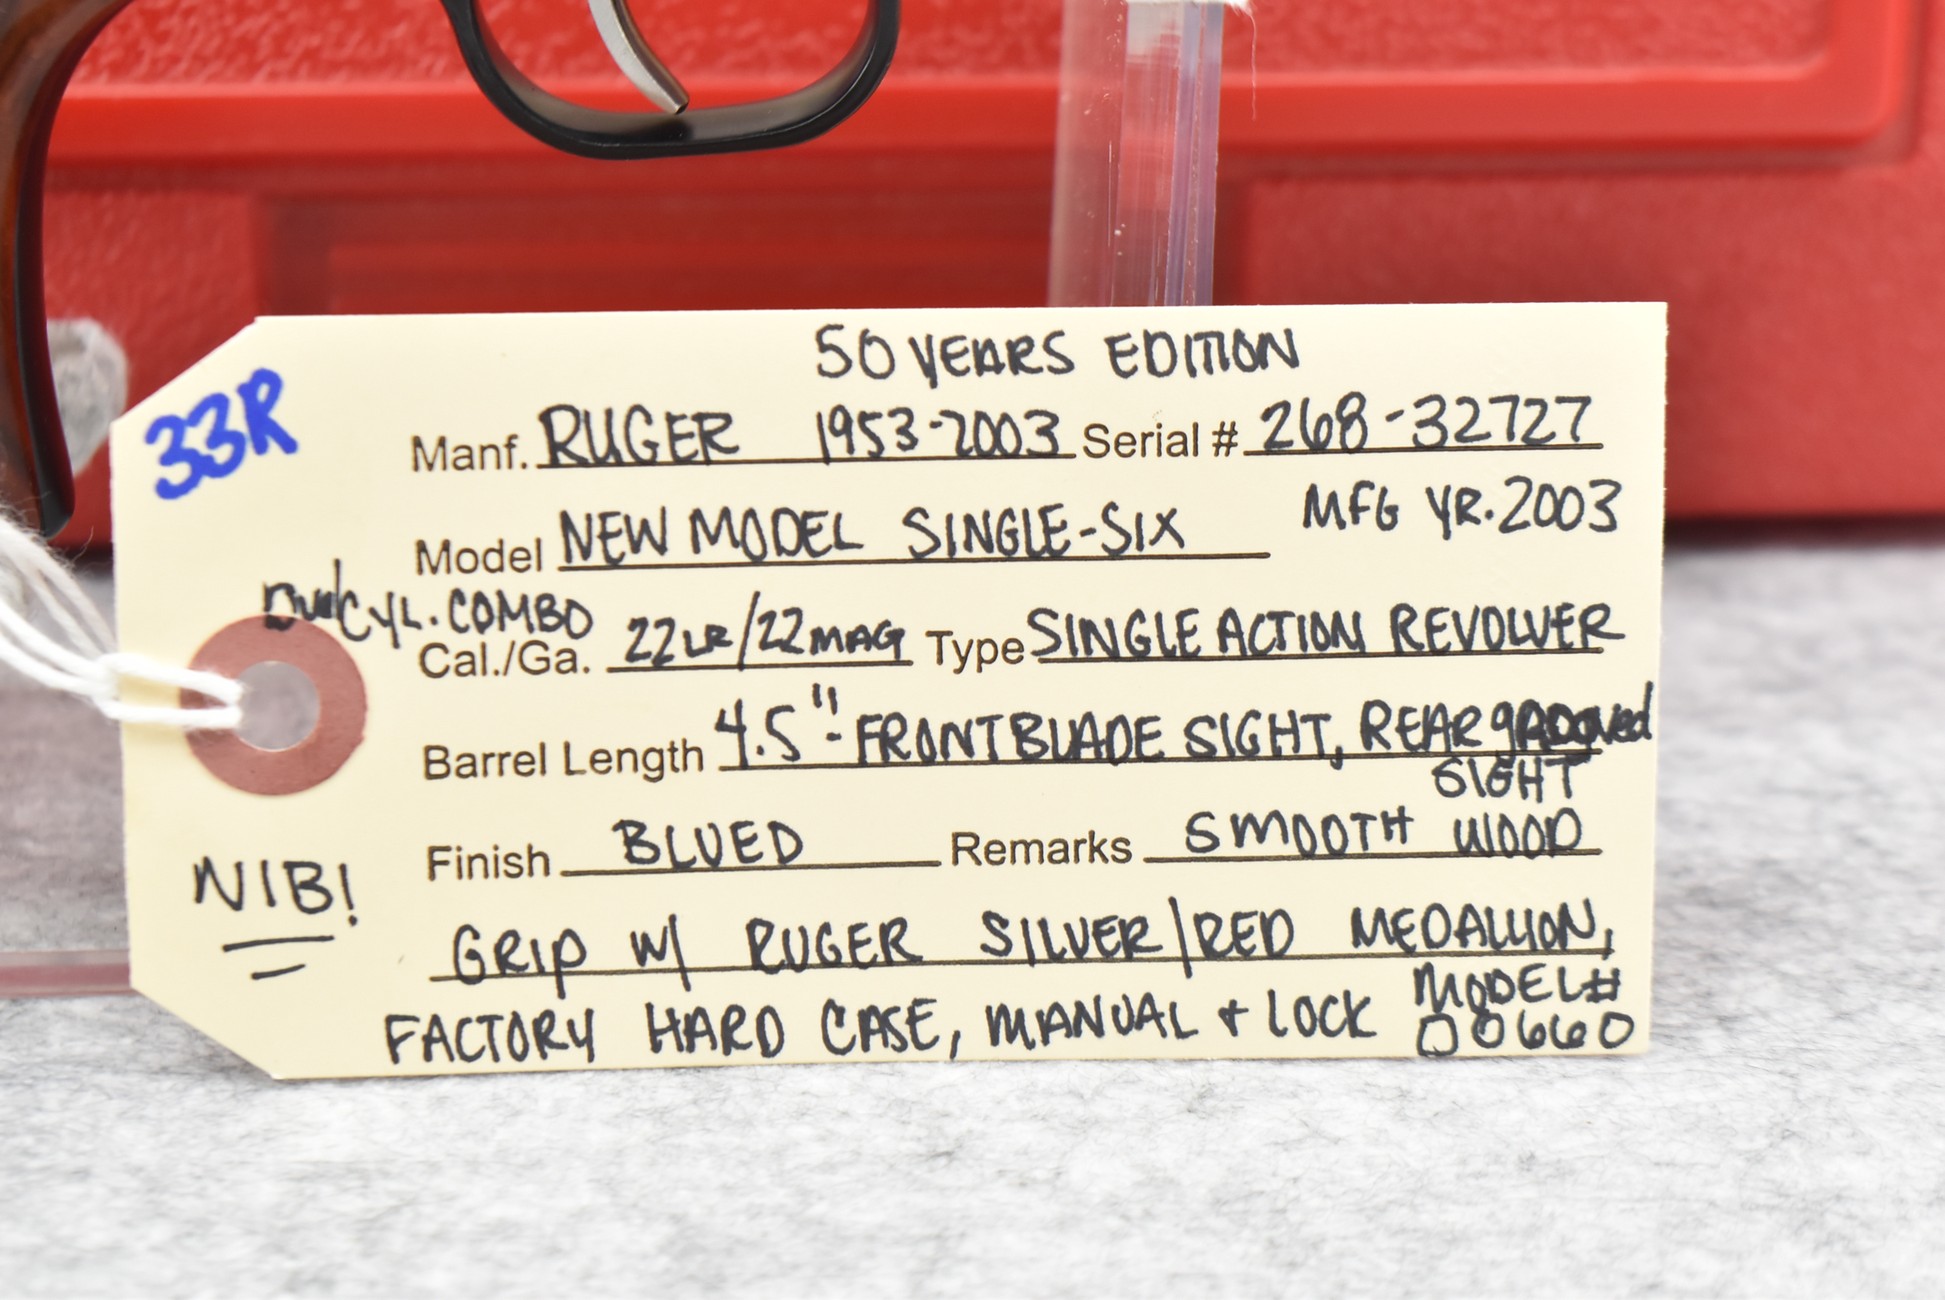 50 YEARS EDITION
33R
Manf. RUGER 1953-2003 Serial # 268-32727
MFG YR. 2003
Model NEW MODEL SINGLE-SIX
Dual CYL. COMBO
Cal./Ga. 22LR/22MAG Type SINGLE ACTION REVOLVER
Barrel Length 4.5"- FRONT BLADE SIGHT, REAR grooved
SIGHT
Finish BLUED Remarks SMOOTH WOOD
NIB!
GRIP W/ RUGER SILVER/RED MEDALLION,
FACTORY HARD CASE, MANUAL + LOCK MODEL#
00660